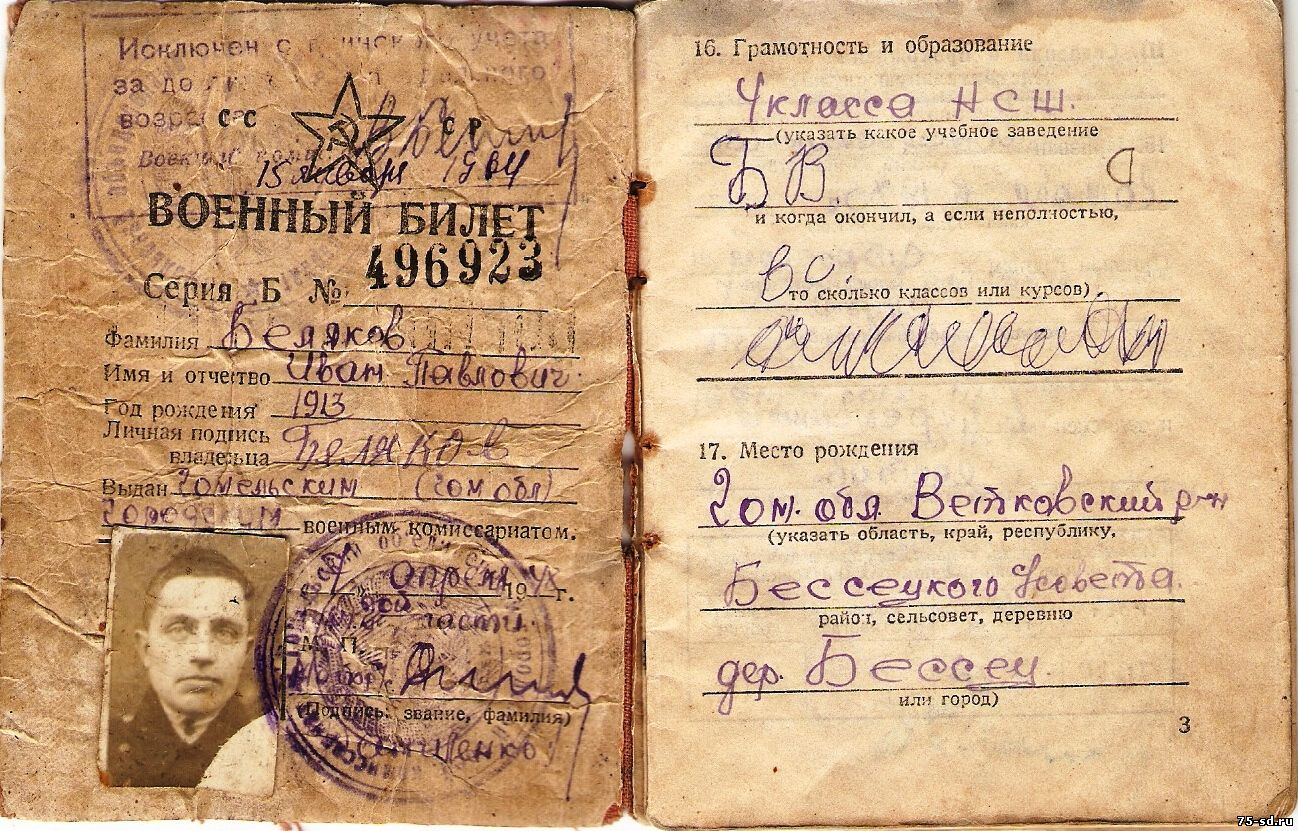 Исключен с воинского учета
за до
возра
СС СР
Военный
15 января 1964
ВОЕННЫЙ БИЛЕТ
Серия Б № 496923
Фамилия Беляков
Имя и отчество Иван Павлович.
Год рождения 1913
Личная подпись
владельца Беляков
Выдан Гомельским (Гом обл)
городским военным комиссариатом.
апреля 19 г.
части.
М. П.
(Подпись, звание, фамилия)
16. Грамотность и образование
4 класса НСШ.
(указать какое учебное заведение
БВ.
и когда окончил, а если неполностью,
то сколько классов или курсов)
17. Место рождения
Гом. обл. Ветковский р-н
(указать область, край, республику,
Бессецкого с/совета.
район, сельсовет, деревню
дер. Бессец.
или город)
3
75-sd.ru